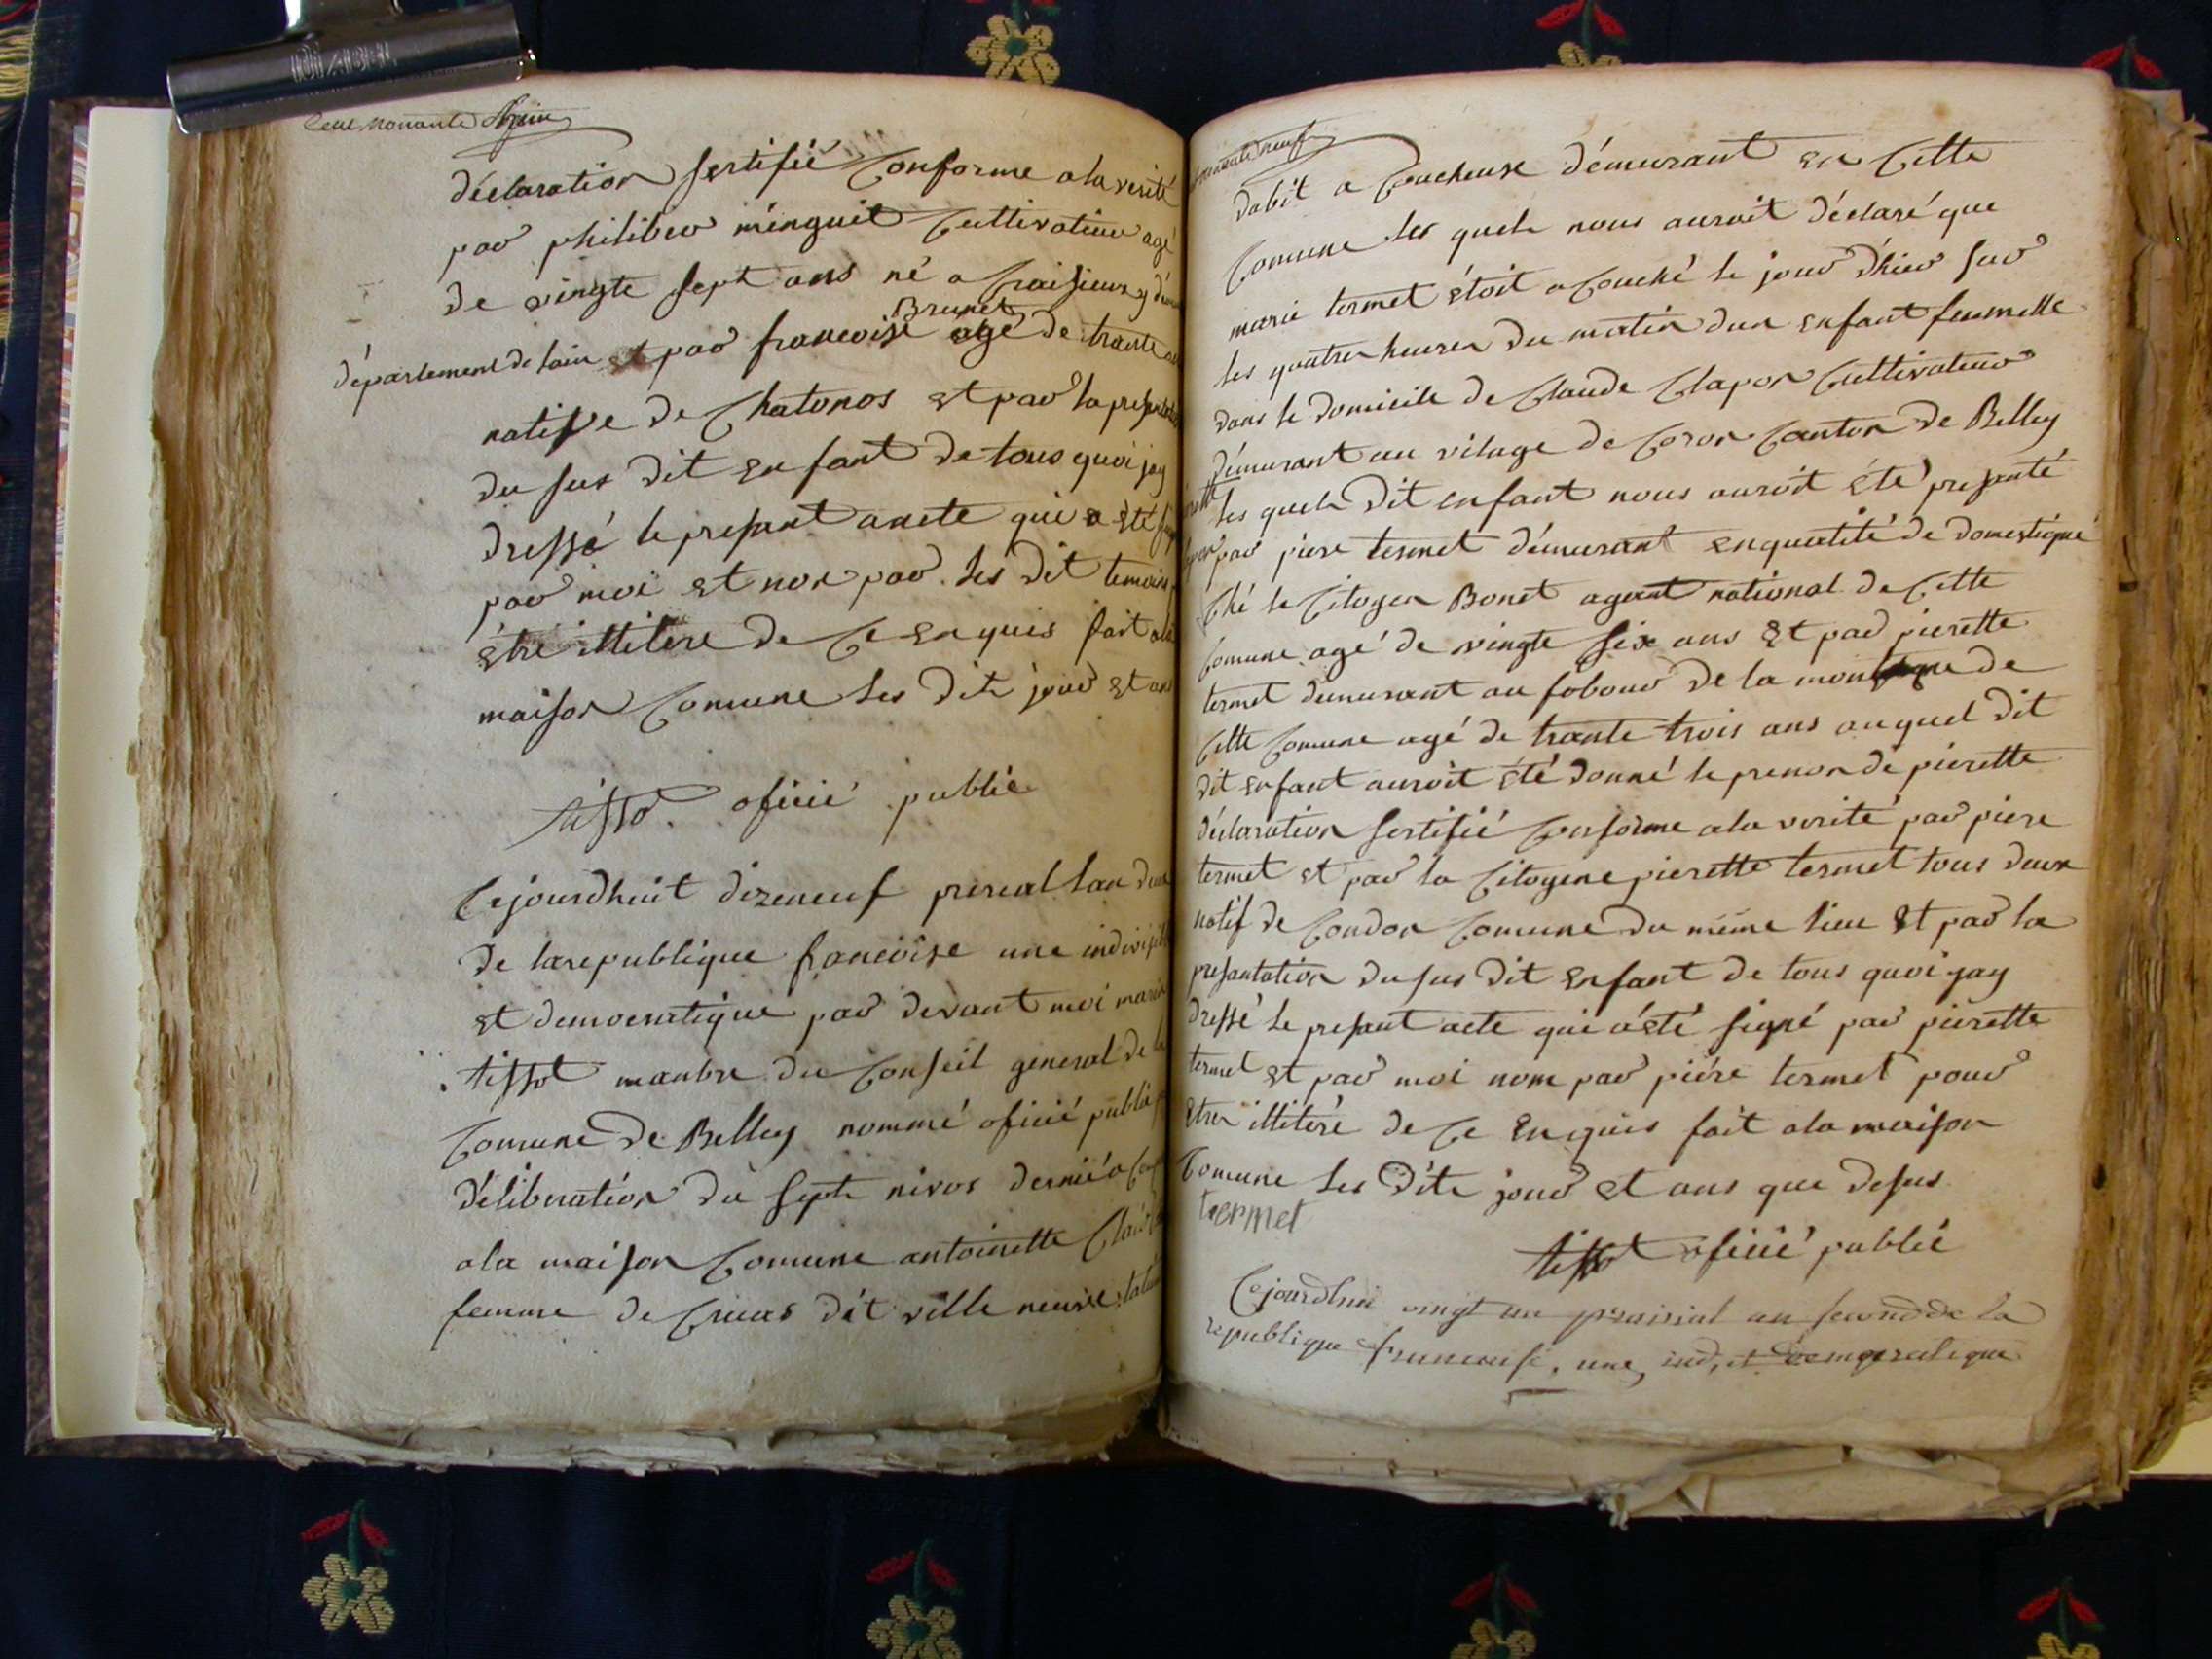 déclaration sertifié Conforme a la verité
par philiber minguet Cultivateur agé
de vingte sept ans né a
Brunet
département de lain et par francoise agé de trante
natifve de Chatonos et par la
du sus dit enfant de tous quoi jay
dressé le presant anete qui a été
par moi et non par les dit temoins
étre illitere de Ce enquis fait ala
maison Comune les dit jour et an
tissot oficié publié
Cejourdhuit dizeneuf prerial lan deux
de larepublique francoise une
et democratique par devant moi
tissot manbre du Conseil general de la
Comune de Belley nommé oficié publié
déliberation du septe nivos dernié a
ala maison Comune antoinette
femme de dit ville neuve
neuf
dabit a Coucheuse démurant en Cette
Comune les quels nous auroit déclaré que
marie termet étoit a Couché le jour dhier sur
les quatres heures du matin dun enfant feumelle
dans le domicile de Claude Clapon Cultivateur
démurant au vilage de Coron Canton de Belley
les quels dit enfant nous auroit été presanté
par piere termet démurant enqualité de domestique
Ché le Citoyen Bonet agant national de Cette
Comune agé de vingte six ans et par pierette
termet demurant au fobour de la de
Cette Comune agé de trante trois ans auquel dit
dit enfant auroit été donné le prenon de pierette
déclaration sertifié Conforme ala verité par piere
termet et par la Citoyene pierette termet tous deux
natif de Condon Comune du méme lieu et par la
presantation du sus dit enfant de tous quoi jay
dressé le presant acte qui a été signé par pierette
termet et par moi nom par piére termet pour
étres illiteré de Ce enquis fait ala maison
Comune les dite jour et ans que desus
termet
tissot oficié publié
Cejourdhui vingt un prairial an second de la
republique francaise, une, ind, et democratique